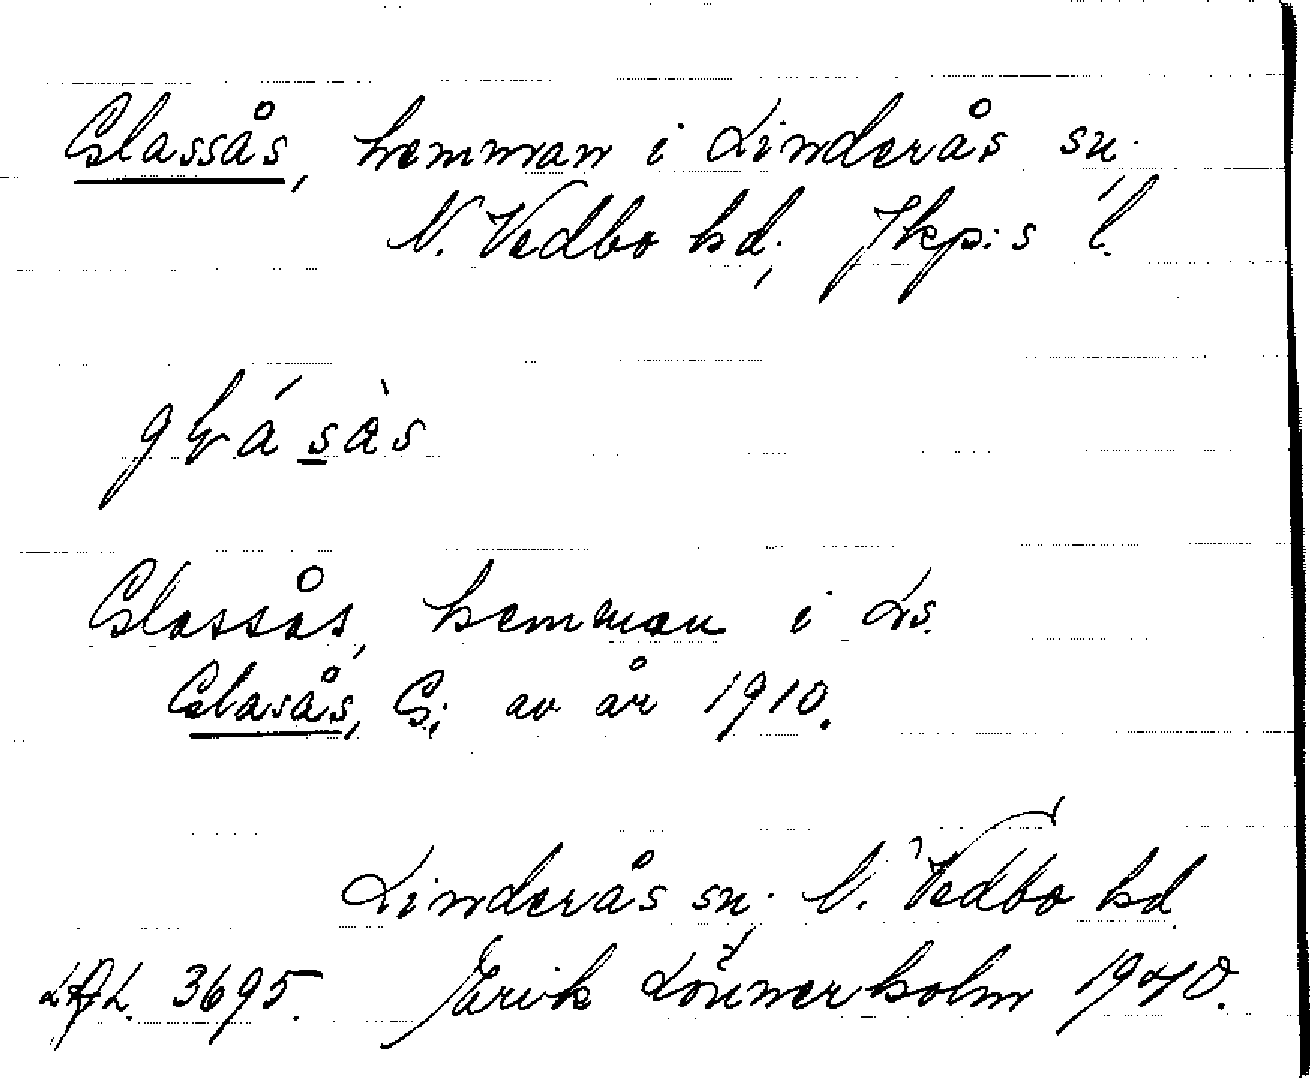 Glassås, hemman i Linderås sn.
N. Vedbo hd, Jkp:s l.
Glassås, hemman i Ls.
Glasås, G; av år 1910.
Linderås sn. N. Vedbo hd
3695. Erik Lönnerholm 1940.